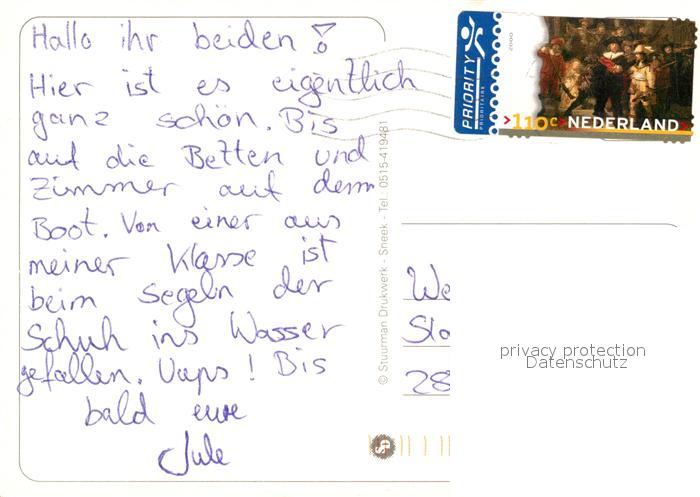 Hallo ihr beiden!
Hier ist es eigentlich
ganz schön. Bis
auf die Betten und
Zimmer auf dem
Boot. Von einer aus
meiner Klasse ist
beim Segeln der
Schuh ins Wasser
gefallen. Uups! Bis
bald eure
Jule
© Stuurman Drukwerk - Sneek - Tel.: 0515-419481
PRIORITY
PRIORITAIRE
2000
>110c> NEDERLAND
We
Sta
28
privacy protection
Datenschutz